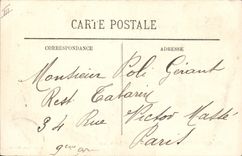 CARTE POSTALE
CORRESPONDANCE
ADRESSE
Monsieur Poli Gérant
Rest Tabarin
34 Rue Victor Massé
Paris
9eme ar